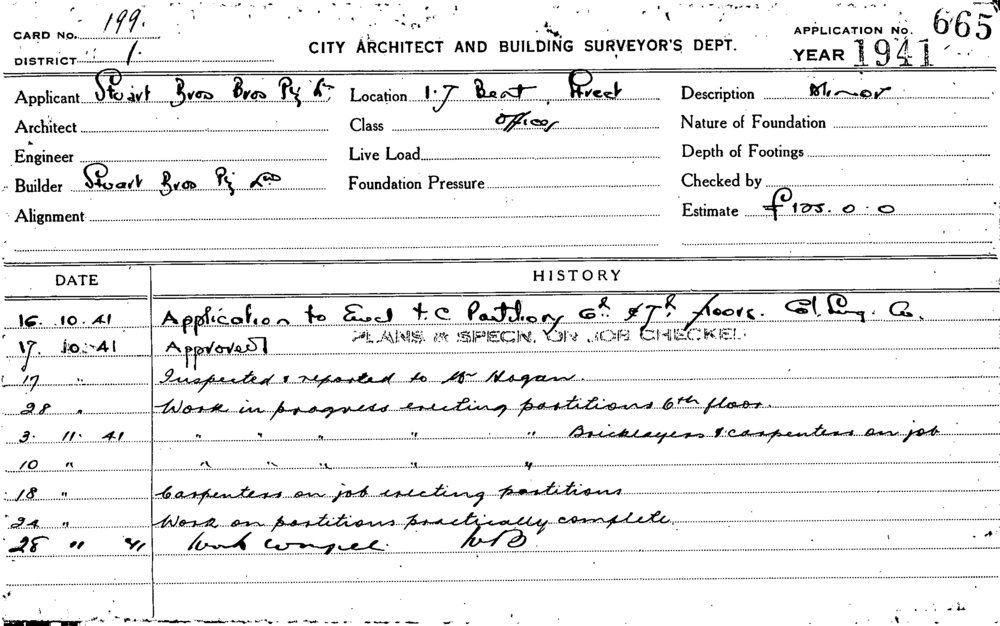 CARD No. 199.
APPLICATION No. 665
DISTRICT 1.
CITY ARCHITECT AND BUILDING SURVEYOR'S DEPT.
YEAR 1941
Applicant Stuart Bros Bros Pty Ld Location 1.7 Bent Street Description Minor
Architect Class Offices Nature of Foundation
Engineer Live Load Depth of Footings
Builder Stuart Bros Pty Ltd Foundation Pressure Checked by
Alignment Estimate £125.0.0
DATE HISTORY
16. 10. 41 Application to Erect T.C Partitions 6th & 7th floors.
PLANS & SPECN. ON JOB CHECKED
17. 10. 41 Approved
17 " Inspected & reported to Mr Hogan.
28 " Work in progress erecting partitions 6th floor.
3. 11. 41 " " " " " Bricklayers & carpenters on job
10 " " " " " "
18 " Carpenters on job erecting partitions
24 " Work on partitions practically complete.
28 " 41 Work complete.